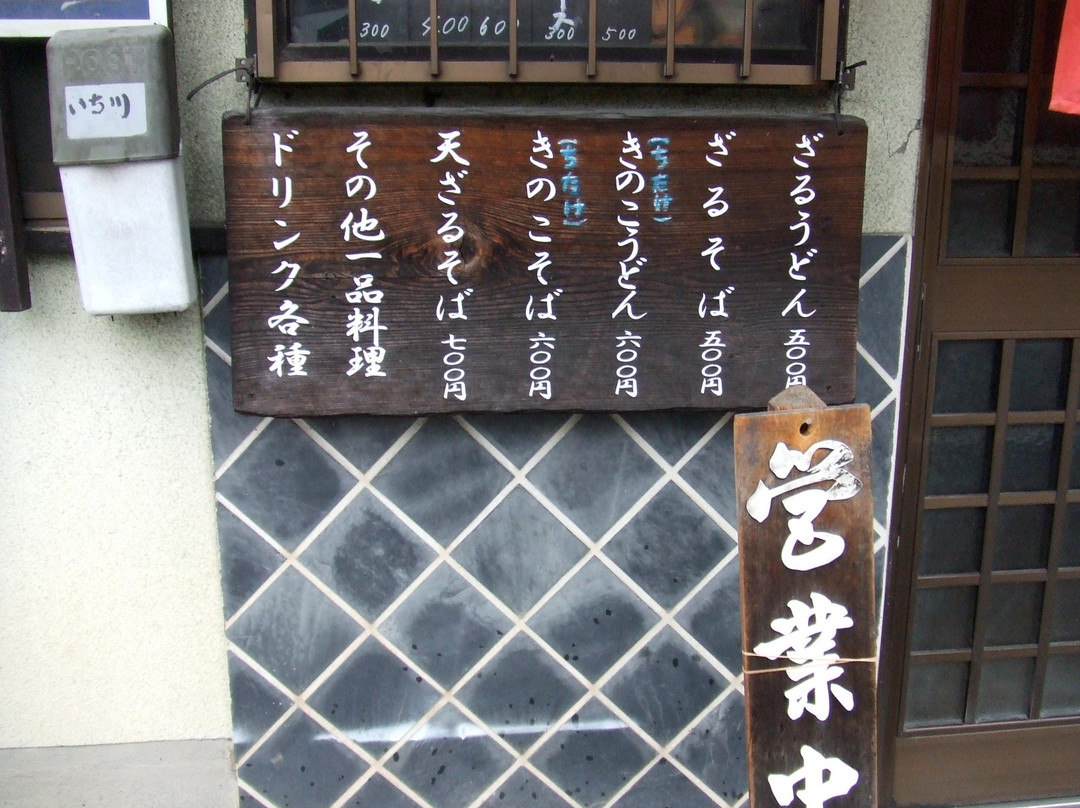 300
500
600
300
500
POST
いち川
ざるうどん 五〇〇円
ざるそば 五〇〇円
(ちたけ)
きのこうどん 六〇〇円
(ちたけ)
きのこそば 六〇〇円
天ざるそば 七〇〇円
その他一品料理
ドリンク各種
営業中